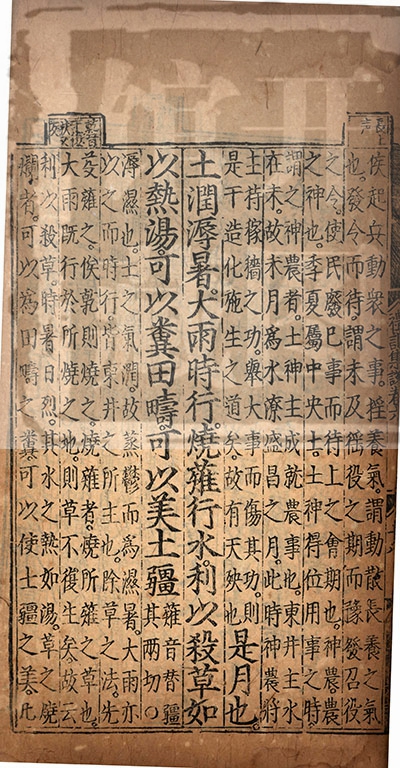 侯起兵動衆之事。搖養氣。謂動散長養之氣
也。發令而待。謂未及徭役之期而豫發召役
之令。使民廢己事而待上之會期也。神農。農
之神也。季夏屬中央土。土神得位用事之時。
謂之神農者。土神主成就農事也。東井主水
在未。故未月為水潦盛昌之月。此時神農將
主持稼穡之功。舉大事而傷其功。則
是干造化施生之道矣。故有天殃也
是月也。
土潤溽暑。大雨時行。燒薙行水。利以殺草如
以熱湯。可以糞田疇。可以美土疆
薙音替疆
其兩切○
溽濕也。土之氣潤。故蒸鬱而為濕暑。大雨亦
以之而時行。皆東井之所主也。除草之法。先
芟薙之。俟乾則燒之。燒薙者。燒所薙之草也。
大雨既行於所燒之地。則草不復生矣。故云
利以殺草。時暑日烈。其水之熱如湯。草之燒
爛者。可以為田疇之糞。可以使土疆之美。凡